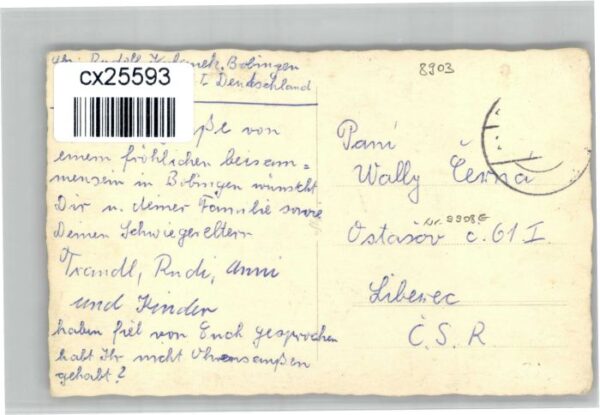 Rudolf Bobingen
I Deutschland
cx25593
von
einem fröhlichen beisam=
mensein in Bobingen wünscht
Dir u. deiner Familie sowie
Deinen Schwiegereltern
Trandl, Rudi, Anni
und Kinder
haben fiel von Euch gesprochen
habt Ihr nicht Ohrensaußen
gehabt?
8903
Paní
Wally Černa
Ostašov c. 61 I
Liberec
Č. S. R